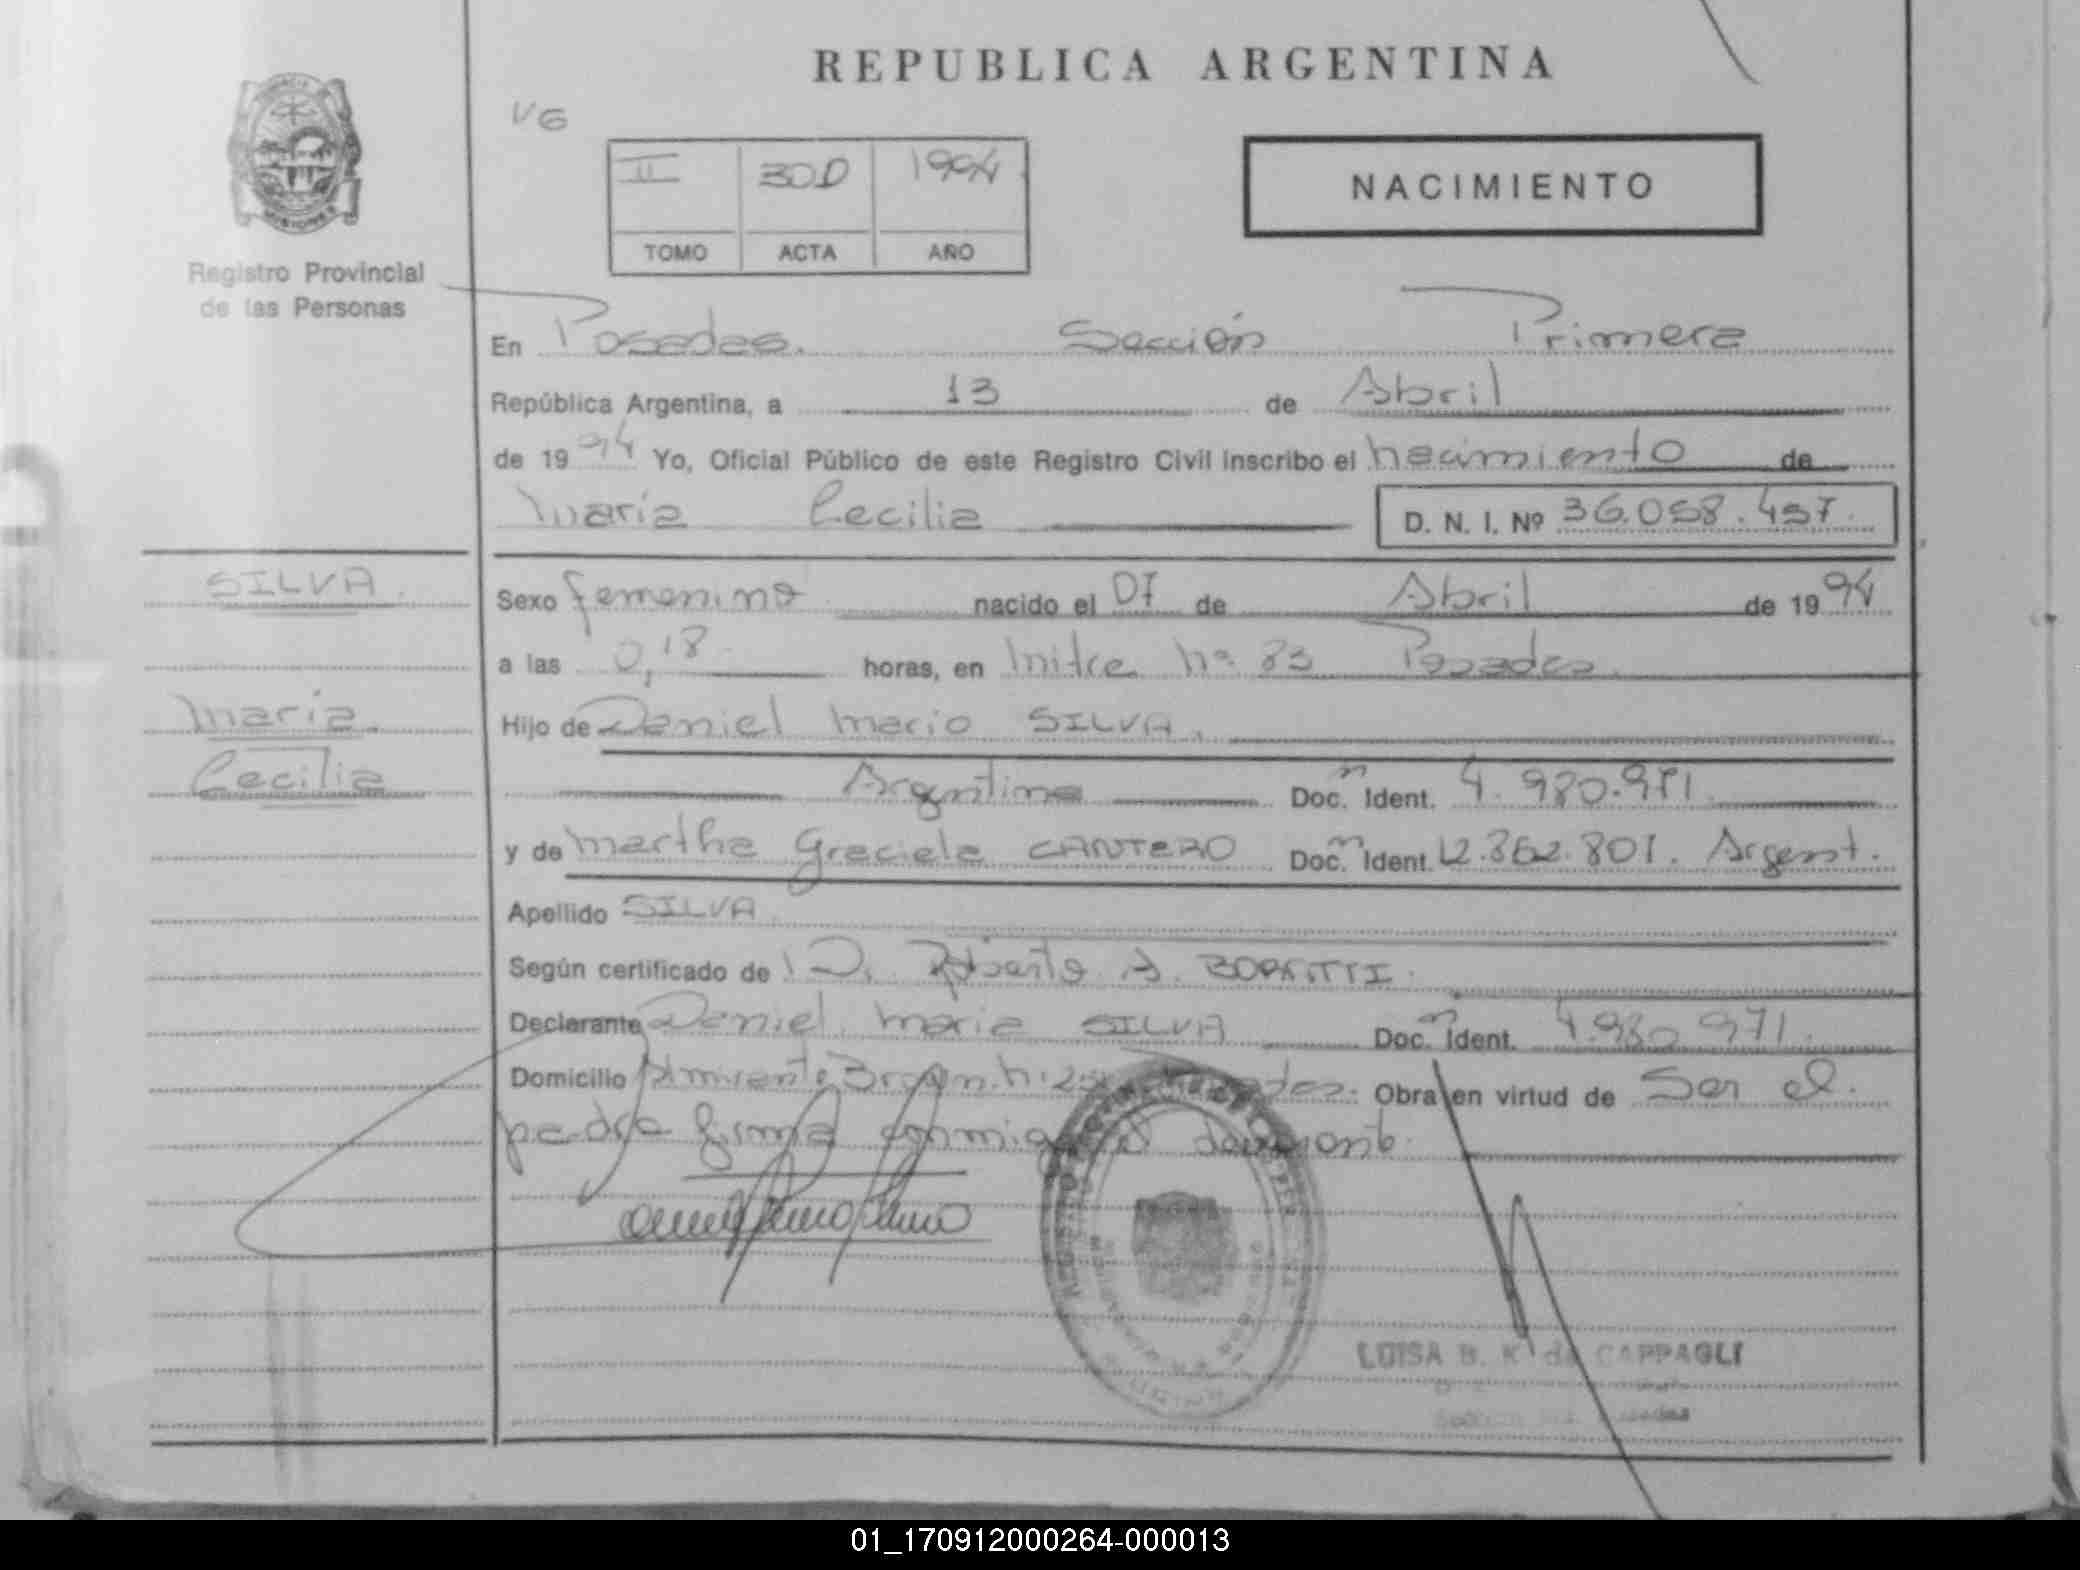 REPUBLICA ARGENTINA
VG
II 300 1994
TOMO ACTA AÑO
NACIMIENTO
MISIONES
Registro Provincial
de las Personas
En Posadas. Sección Primera
República Argentina, a 13 de Abril
de 1994 Yo, Oficial Público de este Registro Civil inscribo el nacimiento de
María Cecilia D. N. I. Nº 36.058.457.
SILVA.
María
Cecilia
Sexo femenino nacido el 07 de Abril de 1994
a las 0,18 horas, en Mitre nº 83 Posadas.
Hijo de Daniel Mario SILVA.
Argentino Doc. Ident. 4.980.971
y de Martha Graciela CANTERO Doc. Ident. 12.362.801. Argent.
Apellido SILVA
Según certificado de D. Roberto A.
Declarante Daniel Mario SILVA Doc. Ident. 4.980.971.
Domicilio Obra en virtud de Ser el
padre firma conmigo
LUISA B. K de CAPPAGLI
01_170912000264-000013